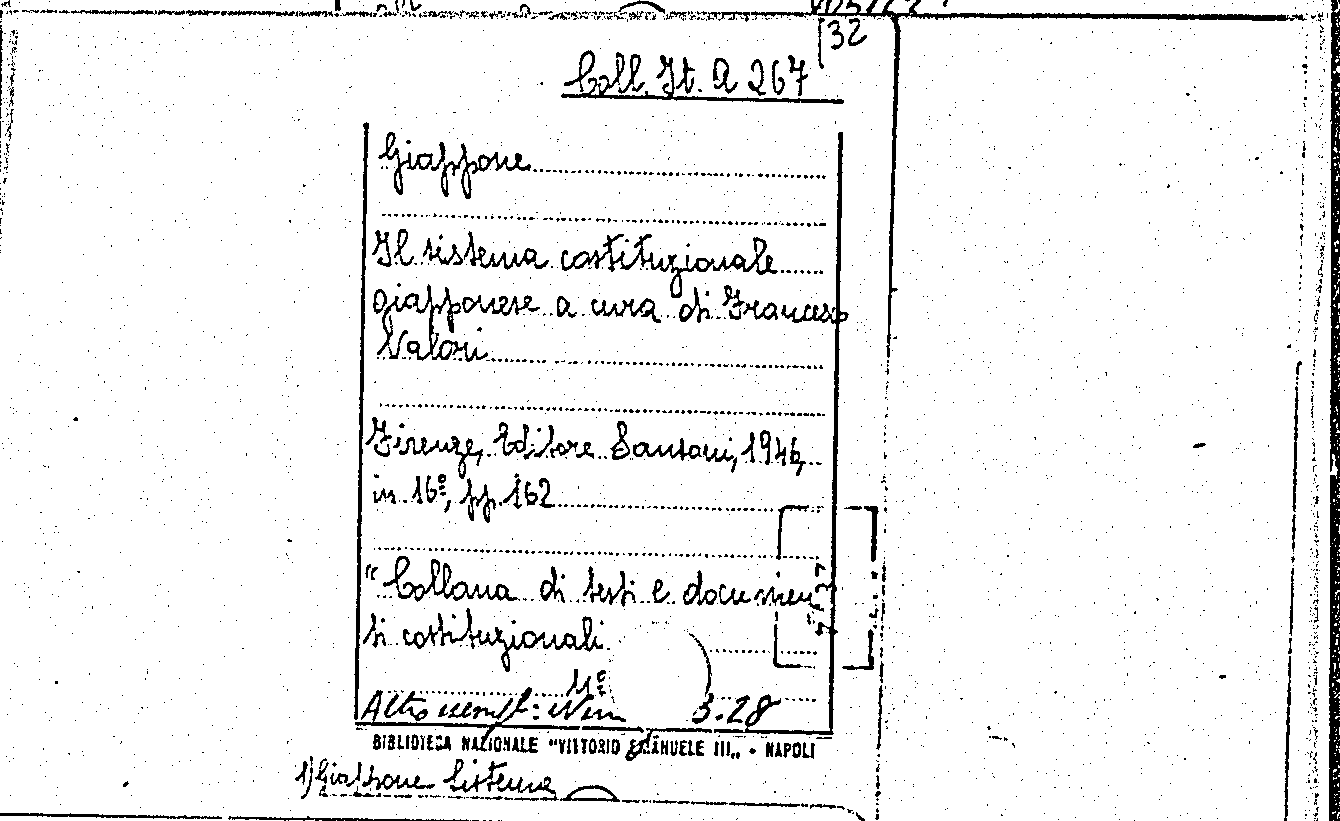 32
Coll. It. A 267
Giappone
Il sistema costituzionale
giapponese a cura di Francesco
Valori
Firenze, Editore Sansoni, 1946,
in 16º, pp. 162
"Collana di testi e documen
ti costituzionali
Altro esempl:
3.28
BIBLIOTECA NAZIONALE "VITTORIO EMANUELE III„ - NAPOLI
1) Giappone Sistema